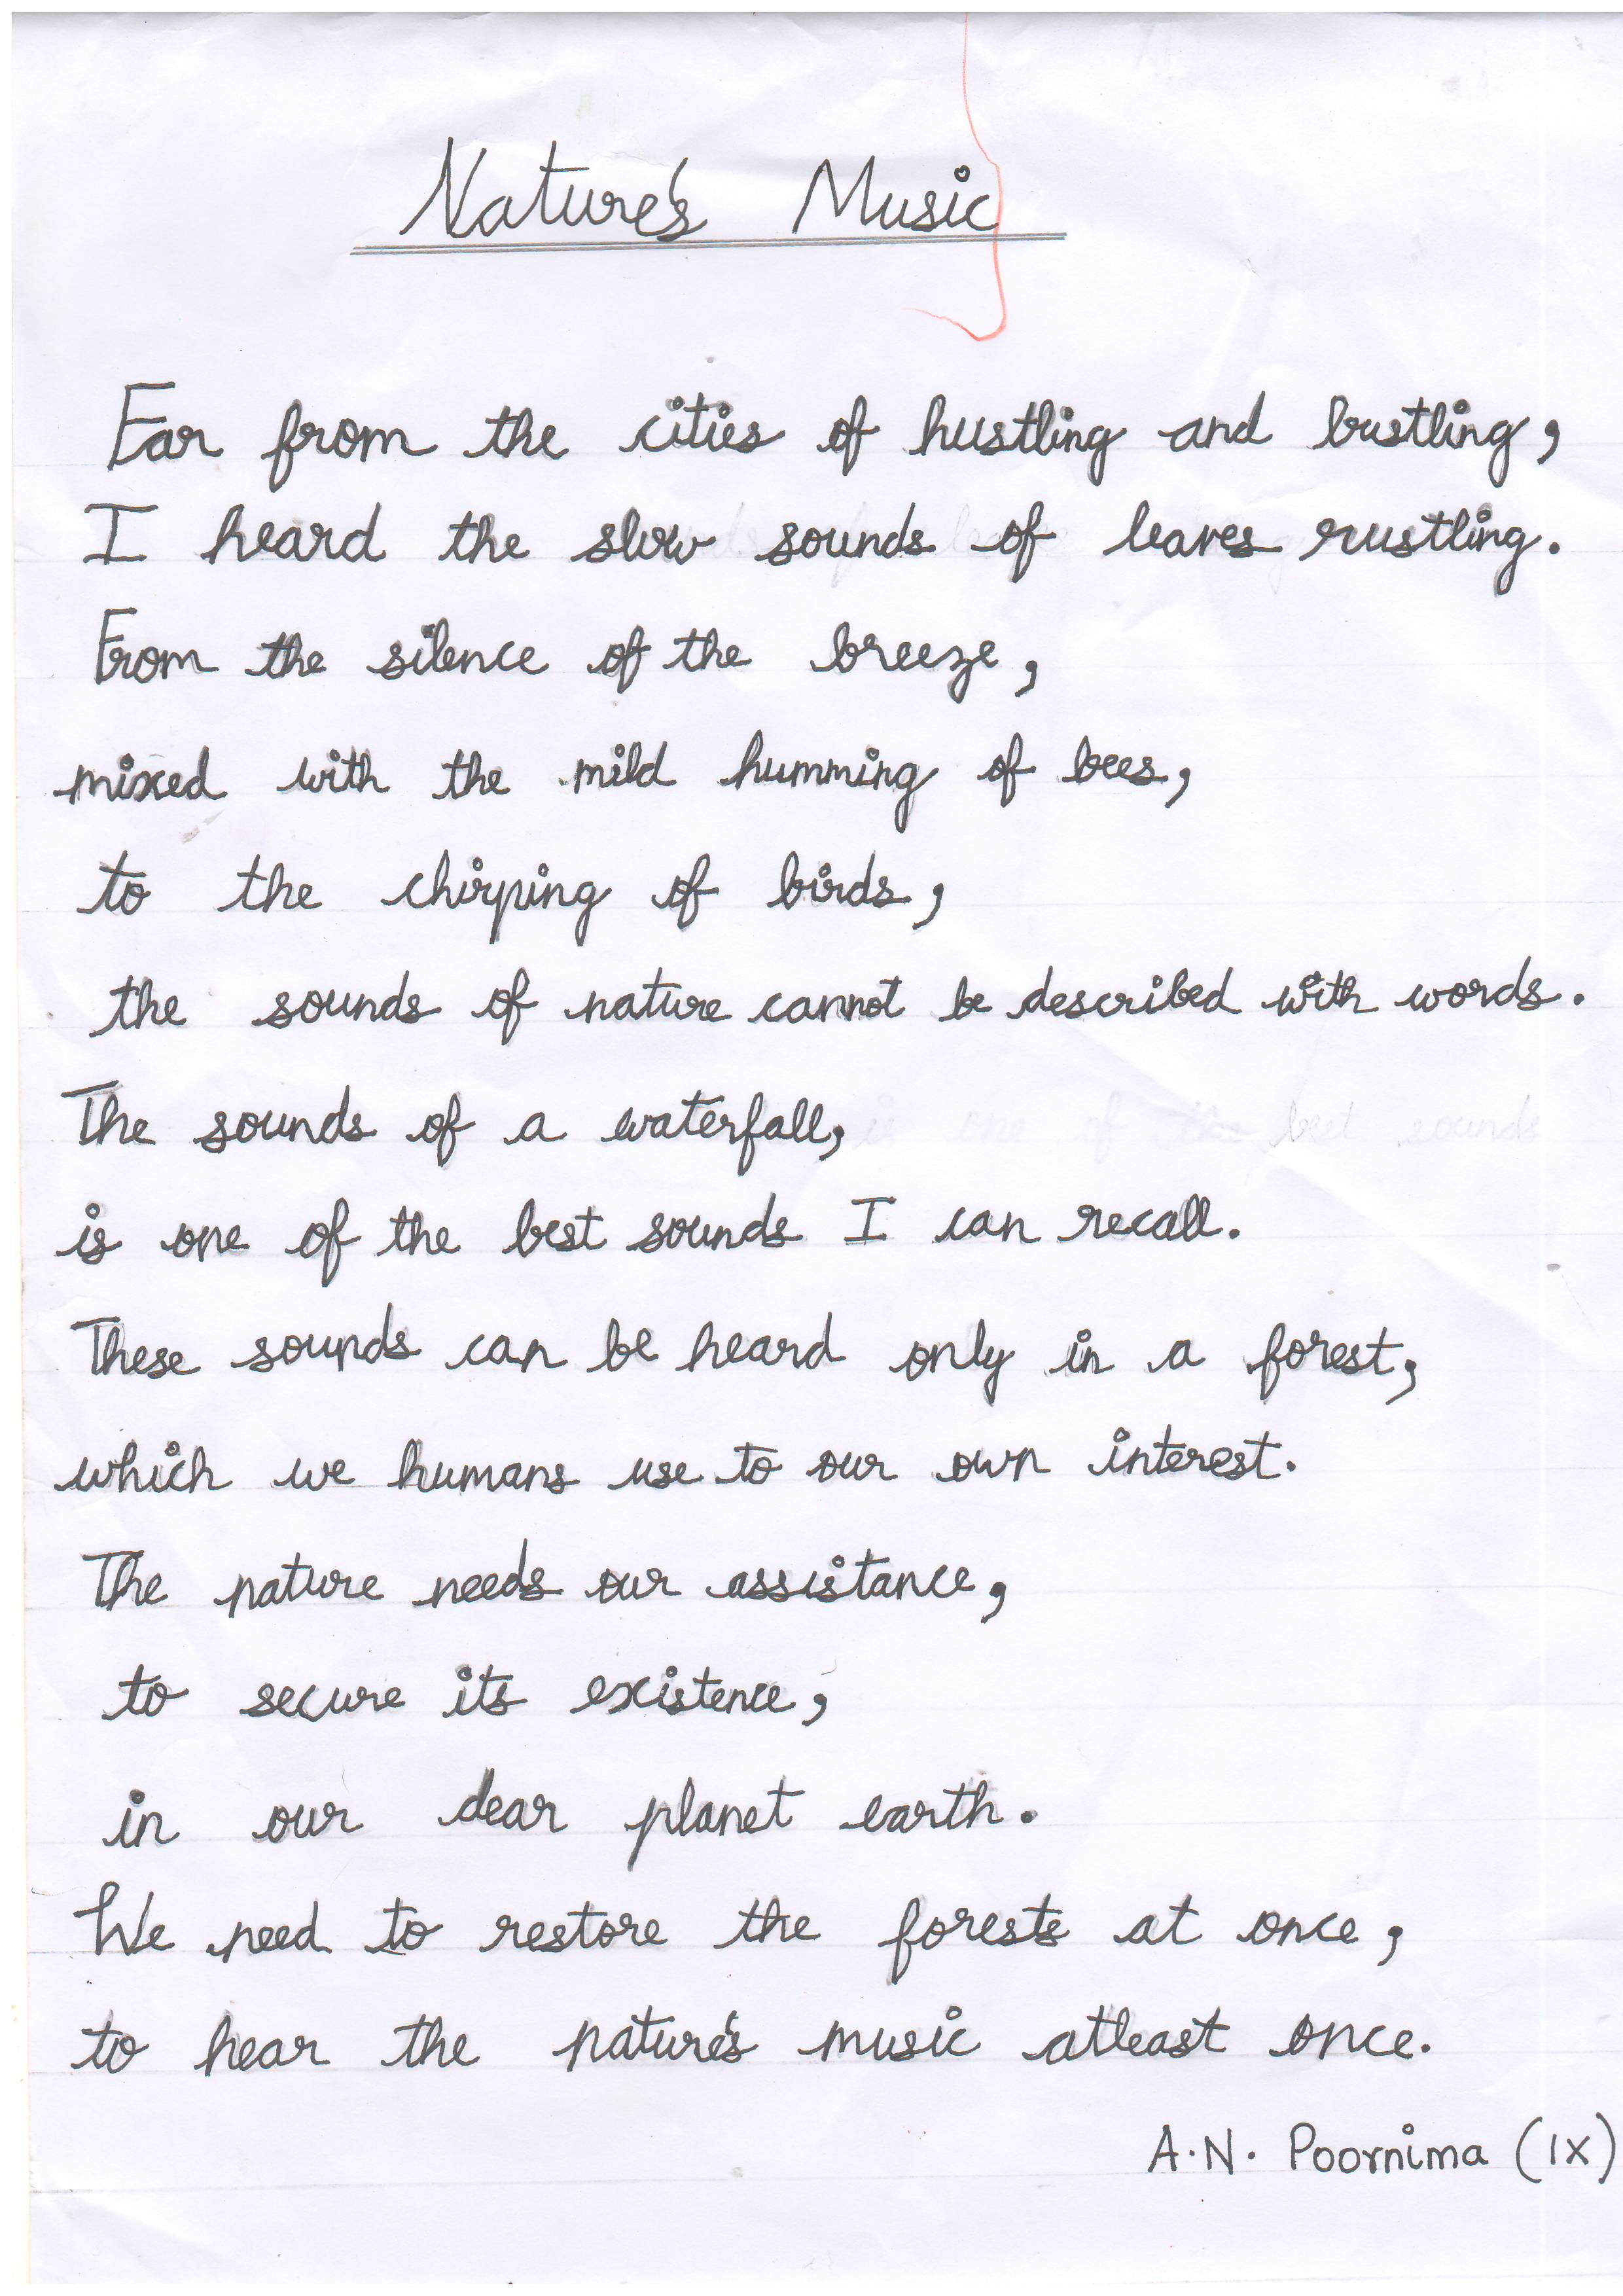 Nature's Music
Far from the cities of hustling and bustling,
I heard the slow sounds of leaves rustling.
From the silence of the breeze,
mixed with the mild humming of bees,
to the chirping of birds,
the sounds of nature cannot be described with words.
The sounds of a waterfall,
is one of the best sounds I can recall.
These sounds can be heard only in a forest,
which we humans use to our own interest.
The nature needs our assistance,
to secure its existence,
in our dear planet earth.
We need to restore the forests at once,
to hear the nature's music atleast once.
A.N. Poornima (IX)